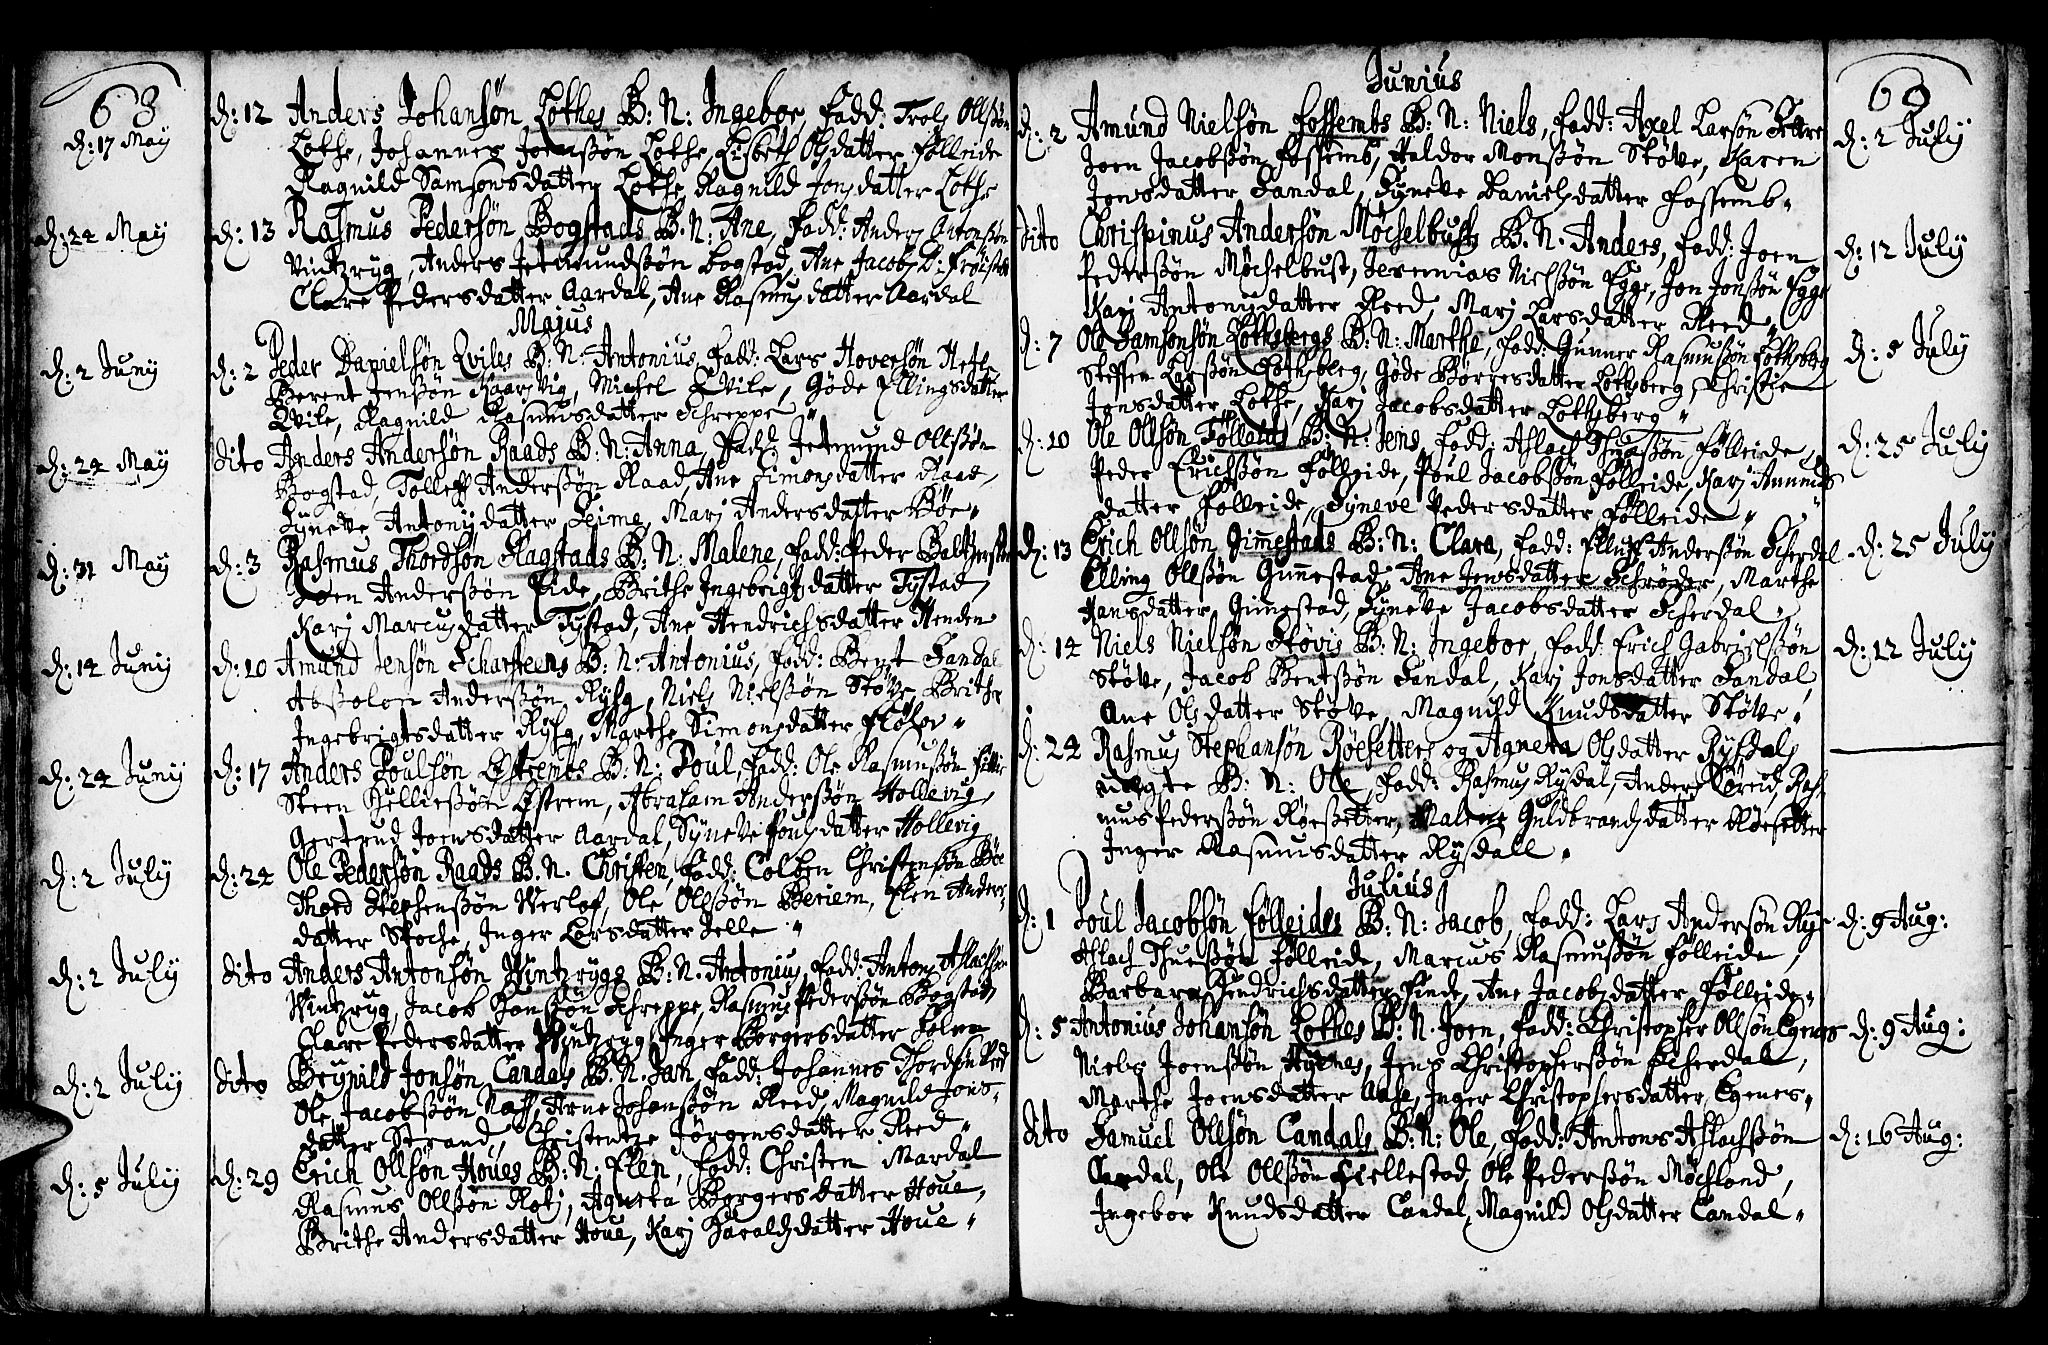 68
d: 12 Anders Johansøn Lothes B: N: Ingebor, Fadd: Trols Olsøn
d: 17 May
Lothe, Johannes Joensøn Lothe, Lisbeth Olsdatter Følleide
Ragnild Samsonsdatter Lothe, Ragnild Jonsdatter Lothe
d: 24 May
d: 13 Rasmus Pedersøn Bogstads B: N: Ane, Fadd: Anders Antonsøn
Vintzryg, Anders Jetmundsøn Bogstad, Ane Jacobs D:
Clare Pedersdatter Aardal, Ane Rasmusdatter Aardal
Majus
d: 2 Juny
d: 2 Peder Danielsøn Qviles B: N: Antonius, Fadd: Lars Hoversøn
Berent Jensøn, Michel Qvile, Gøde Ellingsdatter
Qvile, Ragnild Rasmusdatter Schreppe
d: 24 May
dito Anders Andersøn Raads B: N: Anna, Fadd: Jetmund Olsøn
Bogstad, Tolleff Andersøn Raad, Ane Simonsdatter Raad
Syneve Antonydatter Seime, Marj Andersdatter Bøe
d: 31 May
d: 3 Rasmus Thordsøn Ragstads B: N: Malene, Fadd: Peder
Joen Andersøn Eide, Brithe Ingebrigtsdatter Tystad
Karj Marcusdatter Tystad, Ane Hendrichsdatter Henden
d: 14 Junij
d: 10 Amund Jensøn Scharsteens B: N: Antonius, Fadd: Bent Sandal
Absolon Andersøn Rysg, Niels Nielsøn Støve, Brithe
Ingebrigtsdatter Rysg, Marthe Simonsdatter
d: 24 Junij
d: 17 Anders Poulsøn Estrembs B: N: Poul, Fadd: Ole Rasmusøn
Steen Estrem, Abraham Andersøn Hollevig
Gertrud Joensdatter Aardal, Syneve Poulsdatter Hollevig
d: 2 July
d: 24 Ole Pedersøn Raads B: N: Christen, Fadd: Colben Christensøn Bøe
Thord Stephensøn, Ole Olsøn Beriem, Elen Anders-
datter Stoche, Inger Larsdatter
d: 2 July
dito Anders Antonsøn Vintzrygs B: N: Antonius, Fadd: Antons
Vintzryg, Jacob Schreppe, Rasmus Pedersøn Bogstad
Clare Pedersdatter Vintzryg, Inger Børgersdatter
d: 2 July
dito Brynild Jonsøn Candals B: N: Jan, Fadd: Johannes Thordsøn
Ole Jacobsøn, Arne Johansøn Reed, Magnild Jons-
datter Strand, Christentze Jørgensdatter Reed
d: 5 July
d: 29 Erich Olsøn Houes B: N: Elen, Fadd: Christen Mardal
Rasmus Olsøn, Agneta Børgersdatter Houe,
Brithe Andersdatter Houe, Karj Haraldsdatter Houe
69
Junius
d: 2 Amund Nielsøn Fossembs B: N: Niels, Fadd: Axel Larsøn
d: 2 July
Joen Jacobsøn Fossemb, Haldor Monsøn Støve, Karen
Jonsdatter Sandal, Syneve Danielsdatter Fossemb
dito Chrispinus Andersøn Møchelbusts B: N: Anders, Fadd: Joen
d: 12 July
Pedersøn Møchelbust, Jeremias Nielsøn Egge, Jon Jonsøn Egge
Karj Antonijdatter Reed, Marj Larsdatter Reed
d: 7 Ole Samsonsøn Lothsbergs B: N: Marthe, Fadd: Gunner Rasmusøn Lothsberg
d: 5 July
Steffen Larsøn Lothsberg, Gøde Børresdatter Lothsberg, Christie
Jonsdatter Lothe, Karj Jacobsdatter Lothsberg
d: 10 Ole Olsøn Følleids B: N: Jens, Fadd: Aslach Følleide
d: 25 July
Peder Erichsøn Følleide, Poul Jacobsøn Følleide, Karj Amunds
datter Følleide, Syneve Pedersdatter Følleide
d: 13 Erich Olsøn Gimestads B: N: Clara, Fadd: Andersøn Scherdal
d: 25 July
Elling Olsøn Gimestad, Ane Jensdatter Schrøder, Marthe
Hansdatter Gimestad, Syneve Jacobsdatter Scherdal
d: 14 Niels Nielsøn Støvis B: N: Ingebor, Fadd: Erich Gabrielsøn
d: 12 July
Støve, Jacob Bentsøn Sandal, Karj Jonsdatter Sandal,
Ane Olsdatter Støve, Magnild Knudsdatter Støve
d: 24 Rasmus Stephansøn Røesetters og Agneta Olsdatter Rysdals
uægte B: N: Ole, Fadd: Rasmus Rysdal, Anders, Ras-
mus Pedersøn Røesetter, Malene Guldbrandsdatter Røesetter
Inger Rasmusdatter Rysdall
Julius
d: 1 Poul Jacobsøn Følleides B: N: Jacob, Fadd: Lars Andersøn
d: 9 Aug:
Aslach Thuesøn Følleide, Marcus Rasmusøn Følleide,
Barbara Hendrichsdatter Finde, Ane Jacobsdatter Følleide
d: 5 Antonius Johansøn Lothes B: N: Joen, Fadd: Christopher Olsøn Egenes
d: 9 Aug:
Niels Joensøn Hynes, Jens Christophersøn Scherdal,
Marthe Joensdatter Aase, Inger Christophersdatter Egenes
dito Samuel Olsøn Candals B: N: Ole, Fadd: Antons Aslachsøn
d: 16 Aug:
Candal, Ole Olsøn Giellestad, Ole Pedersøn Møchland,
Ingebor Knudsdatter Candal, Magnild Olsdatter Candal